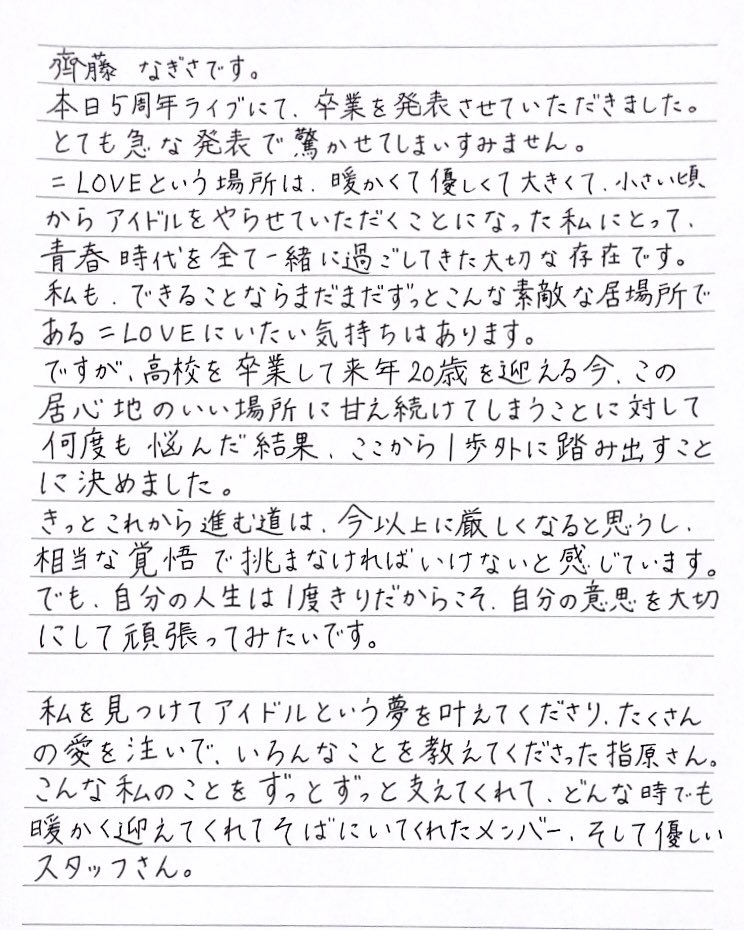 齊藤 なぎさです。
本日5周年ライブにて、卒業を発表させていただきました。
とても急な発表で驚かせてしまいすみません。
=LOVEという場所は、暖かくて優しくて大きくて、小さい頃
からアイドルをやらせていただくことになった私にとって、
青春時代を全て一緒に過ごしてきた大切な存在です。
私も、できることならまだまだずっとこんな素敵な居場所で
ある=LOVEにいたい気持ちはあります。
ですが、高校を卒業して来年20歳を迎える今、この
居心地のいい場所に甘え続けてしまうことに対して
何度も悩んだ結果、ここから1歩外に踏み出すこと
に決めました。
きっとこれから進む道は、今以上に厳しくなると思うし、
相当な覚悟で挑まなければいけないと感じています。
でも、自分の人生は1度きりだからこそ、自分の意思を大切
にして頑張ってみたいです。
私を見つけてアイドルという夢を叶えてくださり、たくさん
の愛を注いで、いろんなことを教えてくださった指原さん。
こんな私のことをずっとずっと支えてくれて、どんな時でも
暖かく迎えてくれてそばにいてくれたメンバー、そして優しい
スタッフさん。